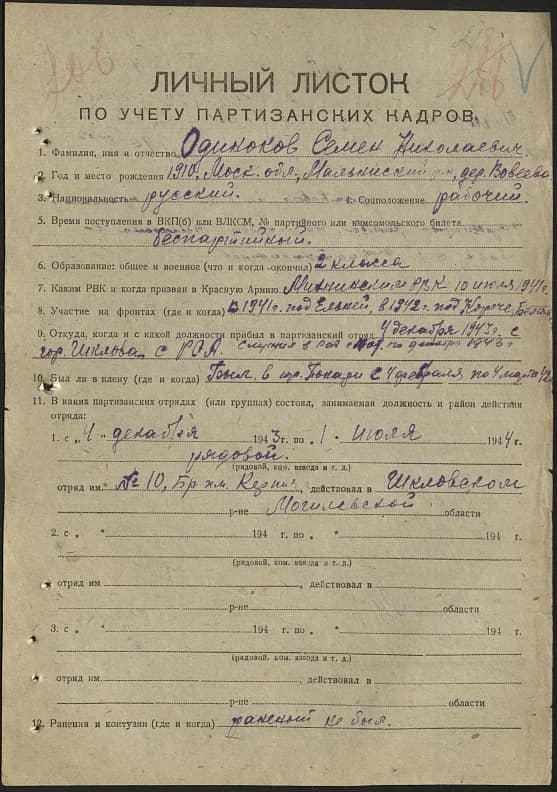 ЛИЧНЫЙ ЛИСТОК
ПО УЧЕТУ ПАРТИЗАНСКИХ КАДРОВ
1. Фамилия, имя и отчество Одиноков Семен Николаевич.
2. Год и место рождения 1910, Моск. обл., дер.
3. Национальность русский. 4. Соцположение рабочий.
5. Время поступления в ВКП(б) или ВЛКСМ, № партийного или комсомольского билета
беспартийный.
6. Образование: общее и военное (что и когда окончил) 2 класса
7. Каким РВК и когда призван в Красную Армию РВК 10 июля 1941г.
8. Участие на фронтах (где и когда) В 1941г. под Ельней, в 1942г. под
9. Откуда, когда и с какой должности прибыл в партизанский отряд 4 декабря 1943г. с
гор. Шклова, с РОА. по декабрь 1943г
10. Был ли в плену (где и когда) Был. в с 4 февраля по 4
11. В каких партизанских отрядах (или группах) состоял, занимаемая должность и район действия
отряда:
1. с „4" декабря 1943г. по „1" июля 1944г.
рядовой.
(рядовой, ком. взвода и т. д.)
отряд им. № 10, Бр., действовал в Шкловском
р-не Могилевской области
2. с „ " 194 г. по „ " 194 г.
(рядовой, ком. взвода и т. д.)
отряд им , действовал в
р-не области
3. с „ " 194 г. по „ " 194 г.
(рядовой, ком. взвода и т. д.)
отряд им , действовал в
р-не области
12. Ранения и контузии (где и когда) не был.